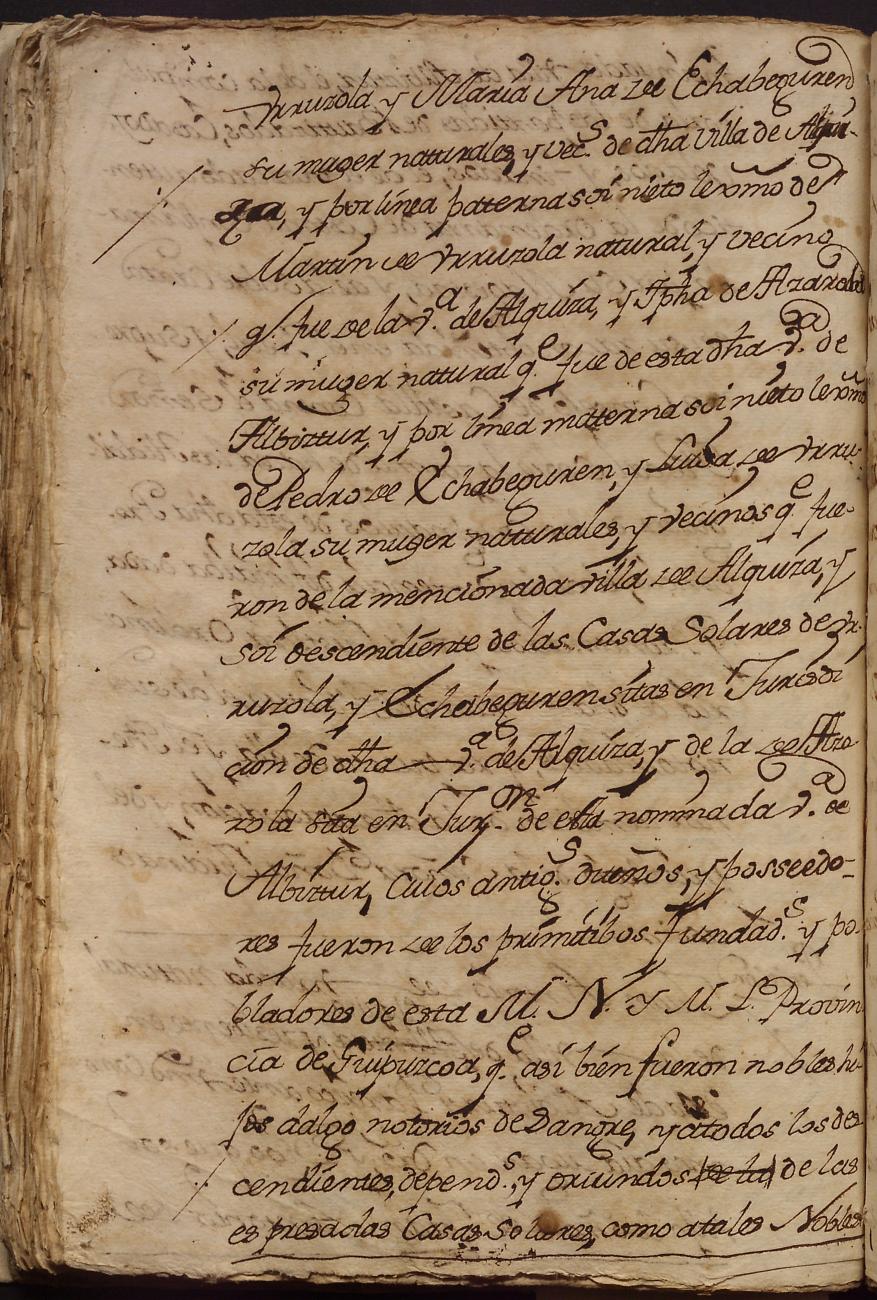 Vrruzola y Maria Ana de Echabeguren
su muger naturales, y vec.s de dha villa de Alqui-
za, y por linea paterna soi nieto lexmo de
Martin de Vrruzola natural, y vecino
q.e fue de la v.a de Alquiza, y Jpha de Azarola
su muger natural q.e fue de esta dha v.a de
Albiztur, y por linea materna soi nieto lexmo
de Pedro de Echabeguren, y de Vrru-
zola su muger naturales, y vecinos q.e fue-
ron de la mencionada villa de Alquiza, y
soi descendiente de las Casas Solares de Vr-
ruzola, y Echabeguren sitas en Jurisdi
cion de dha v.a de Alquiza, y de la de Aza
rola sita en Jur.on de esta nominada v.a de
Albiztur, Cuios antig.s dueños, y posseedo-
res fueron de los primitibos fundad.s y po-
bladores de esta M. N. y M. L. Provin
cia de Guipuzcoa, q.e asi bien fueron nobles hi-
jos dalgo notorios de Sangre, y a todos los des
cendientes, depend.s, y oriundos de las
espresadas Casas Solares, como a tales Nobles